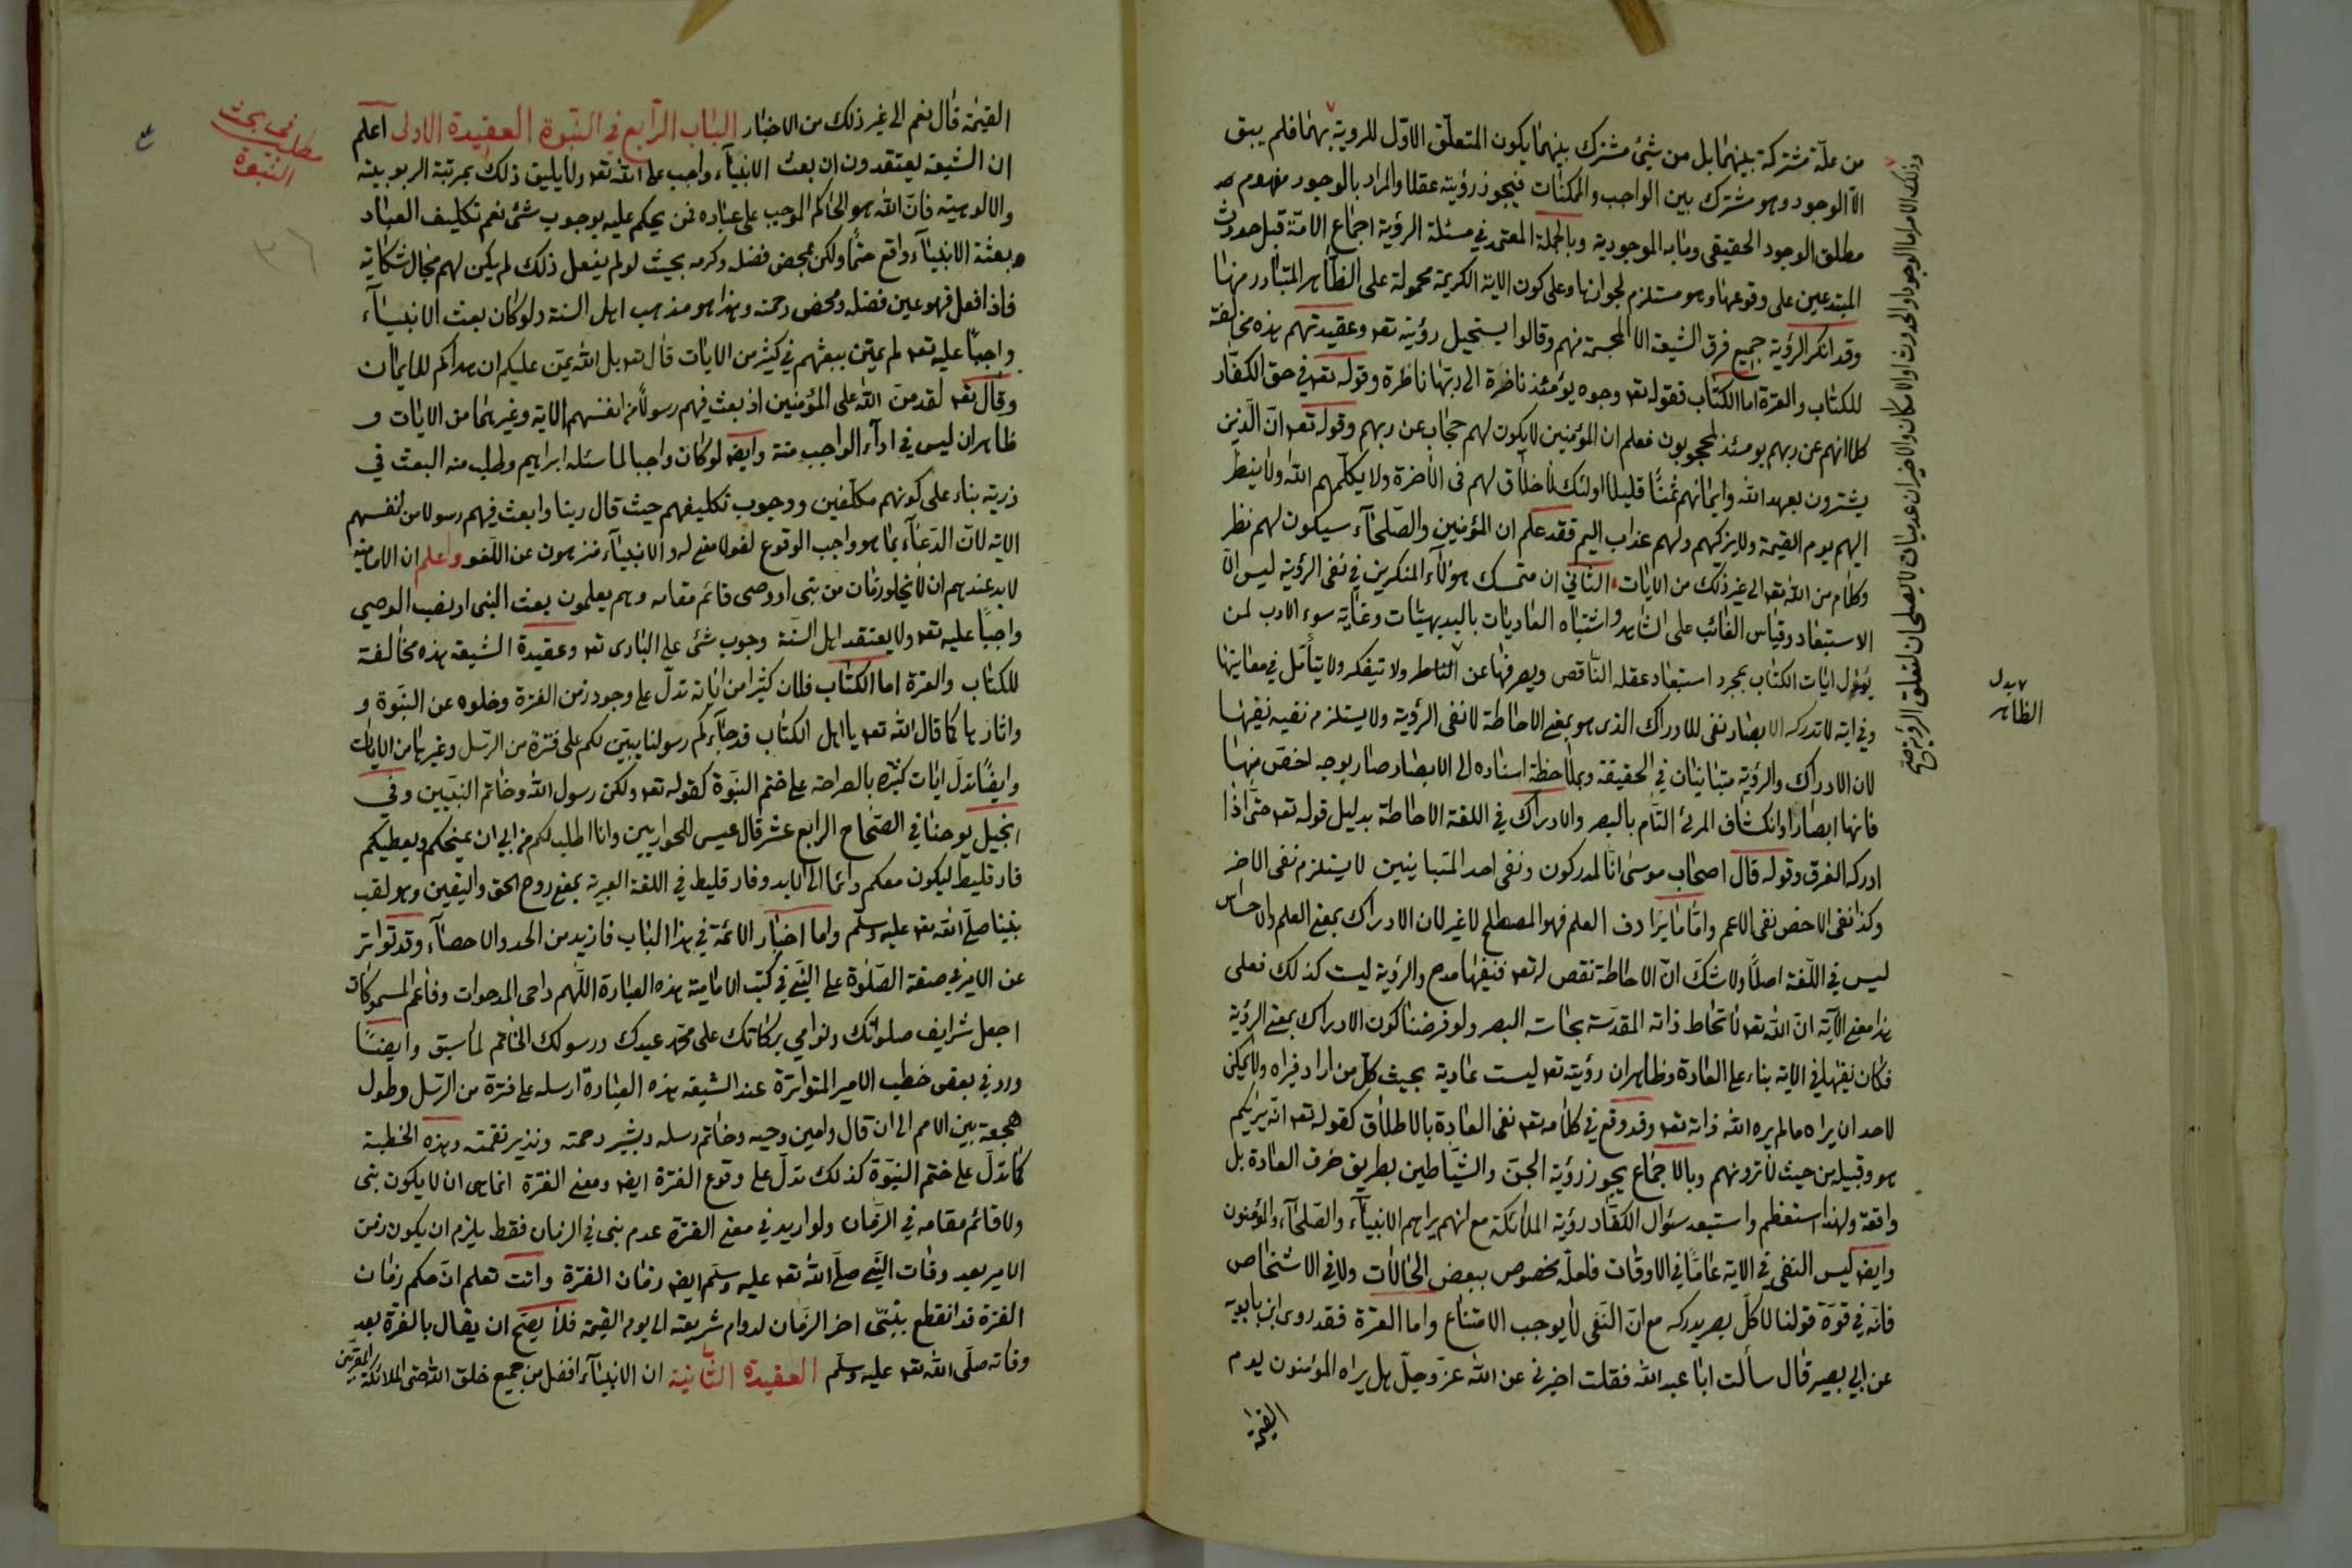 من علة مشتركة بينهما بل من شيئ مشترك بينهما يكون المتعلق الاول للروية بهما فلم يبق
الا الوجود وهو مشترك بين الواجب والممكنات فيجوز رؤيته عقلا والمراد بالوجود مفهوم
مطلق الوجود الحقيقى ومابه الموجودية وبالجملة المعتمد في مسئلة الرؤية اجماع الامة قبل حدوث
المبتدعين على وقوعها وهو مستلزم لجوازها وعلى كون الاية الكريمة محمولة على الظاهر المتبادر منها
وقد انكر الرؤية جميع فرق الشيعة الا المجسمة منهم وقالوا يستحيل رؤيته تعه وعقيدتهم هذه مخالفة
للكتاب والعترة اما الكتاب فقوله تعه وجوه يؤمئذ ناضرة الى ربها ناظرة وقوله تعه في حق الكفار
كلا انهم عن ربهم يومئذ لمحجوبون فعلم ان المؤمنين لا يكون لهم حجاب عن ربهم وقوله تعه ان الذين
يشترون بعهد الله وايمانهم ثمنًا قليلا اولئك لا خلاق لهم فى الاخرة ولا يكلمهم الله ولا ينظر
اليهم يوم القيمة ولا يزكيهم ولهم عذاب اليم فقد علم ان المؤمنين والصلحاء سيكون لهم نظر
وكلام من الله تعه الى غير ذلك من الايات الثاني ان متمسك هؤلاء المنكرين في نفى الرؤية ليس الا
الاستبعاد وقياس الغائب على الشاهد واشتباه العاديات بالبديهيات وغاية سوء الادب لمن
يؤول ايات الكتاب بمجرد استبعاد عقله الناقص ويصرفها عن الناطر ولا تيفكر ولا يتأمل في معانيها
وفي اية لا تدركه الابصار نفى للادراك الذى هو بمعنى الاحاطة لا نفى الرؤية ولا يستلزم نفيه نفيها
لان الادراك والرؤية متباينان في الحقيقة وبملاحظة اسناده الى الابصار صار بوجه اخص منها
فانها ابصارا وانكشاف المرئ التام بالبصر والادراك في اللغة الاحاطة بدليل قوله تعه حتى اذا
ادركه الغرق وقوله قال اصحاب موسى انا لمدركون ونفى احد المتباينين لا يستلزم نفى الاخر
وكذا نفى الاخص نفى الاعم واما ما يرادف العلم فهو المصطلح لا غير لان الادراك بمعنى العلم والاحساس
ليس في اللغة اصلًا ولا شك ان الاحاطة نقص له تعه فنفيها مدح والرؤية ليست كذلك فعلى
هذا معنى الآية ان الله تعه لا تحاط ذاته المقدسة بحاسة البصر ولو فرضنا كون الادراك بمعنى الرؤية
فكان نفيها في الاية بناء على العادة وظاهر ان رؤيته تعه ليست عادية بحيث كل من اراد فيراه ولا يمكن
لاحد ان يراه ما لم يره الله ذاته تعه وقد وقع في كلامه تعه نفى العادة بالاطلاق كقوله تعه انه يريكم
هو وقبيله من حيث لا ترونهم وبالاجماع يجوز رؤية الجن والشياطين بطريق خرق العادة بل
واقعة ولهذا استعظم واستبعد سئوال الكفار رؤية الملائكة مع انهم يراهم الانبياء والصلحاء والمؤمنون
وايضه ليس النفى في الاية عامًا في الاوقات فلعله مخصوص ببعض الحالات ولا في الاشخاص
فانه في قوة قولنا لا كل بصر يدركه مع ان النفى لا يوجب الامتناع واما العترة فقد روى ابن بابويه
عن ابي بصير قال سألت ابا عبد الله فقلت اخبرنى عن الله عز وجل هل يراه المؤمنون يوم
القيمة
وذلك الامر اما الوجود او الحدوث او الامكان والاخيران عدميان لا يصلحان لتعلق الرؤية صح
بدل
الظاهر
القيمة قال نعم الى غير ذلك من الاخبار الباب الرابع في النبوة العقيدة الاولى اعلم
ان الشيعة يعتقدون ان بعث الانبياء واجب على الله تعه ولا يليق ذلك بمرتبة الربوبية
والالوهية فان الله هو الحاكم الموجب على عباده فمن يحكم عليه بوجوب شئ نعم تكليف العباد
وبعثة الانبياء واقع حتمًا ولكن بمحض فضله وكرمه بحيث لو لم يفعل ذلك لم يكن لهم مجال شكاية
فاذا فعل فهو عين فضله ومحض رحمته وهذا هو مذهب اهل السنة ولو كان بعث الانبياء
واجبًا عليه تعه لم يمتن ببعثهم في كثير من الايات قال تعه بل الله يمن عليكم ان هداكم للايمان
وقال تعه لقد من الله على المؤمنين اذ بعث فيهم رسولًا من انفسهم الاية وغيرهما من الايات و
ظاهر ان ليس في اداء الواجب منة وايضه لو كان واجبا لما سئله ابراهيم وطلب منه البعث في
ذريته بناء على كونهم مكلفين ووجوب تكليفهم حيث قال ربنا وابعث فيهم رسولا من انفسهم
الاية لان الدعاء بما هو واجب الوقوع لغو لا معنى له والانبياء منزهون عن اللغو واعلم ان الامامية
لا بد عندهم ان لا يخلو زمان من نبى او وصى قائم مقامه وهم يعلمون بعث النبى او نصب الوصي
واجبًا عليه تعه ولا يعتقد اهل السنة وجوب شئ على البارى تعه وعقيدة الشيعة هذه مخالفة
للكتاب والعترة اما الكتاب فلان كثيرا من اياته تدل على وجود زمن الفترة وخلوه عن النبوة و
واثارها كما قال الله تعه يا اهل الكتاب قد جاءكم رسولنا يبين لكم على فترة من الرسل وغيرها من الايات
وايضًا تدل ايات كثيره بالصراحة على ختم النبوة كقوله تعه ولكن رسول الله وخاتم النبيين وفي
انجيل يوحنا في الصحاح الرابع عشر قال عيسى للحواريين وانا اطلب لكم من ابي ان يمنحكم ويعطيكم
فارقليط ليكون معكم دائما الى الابد وفارقليط في اللغة العبرية بمعنى روح الحق واليقين وهو لقب
نبينا صلى الله تعه عليه وسلم واما اخبار الائمة في هذا الباب فازيد من الحد والاحصاء وقد تواتر
عن الامير في صفة الصلوة على النبي في كتب الامامية هذه العبارة اللهم داحى المدحوات وفاعم المسموكات
اجعل شرايف صلواتك ونوامي بركاتك على محمد عبدك ورسولك الخاتم لما سبق وايضًا
ورد في بعض خطب الامير المتواترة عند الشيعة بهذه العبارة ارسله على فترة من الرسل وطول
هجعة بين الامم الى ان قال وامين وحيه وخاتم رسله وبشير رحمته ونذير نقمته وهذه الخطبة
كما تدل على ختم النبوة كذلك تدل على وقوع الفترة ايضه ومعنى الفترة انما هى ان لا يكون نبى
ولا قائم مقامه في الزمان ولو اريد في معنى الفترة عدم نبى في الزمان فقط يلزم ان يكون زمن
الامير بعد وفات النبي صلى الله تعه عليه وسلم ايضه زمان الفترة وانت تعلم ان حكم زمان
الفترة قد انقطع بنبى اخر الزمان لدوام شريعته الى يوم القيمة فلا يصح ان يقال بالفترة بعد
وفاته صلى الله تعه عليه وسلم العقيدة الثانية ان الانبياء افضل من جميع خلق الله حتى الملائكة المقربين
مطلب في بحث
النبوة
٣٦